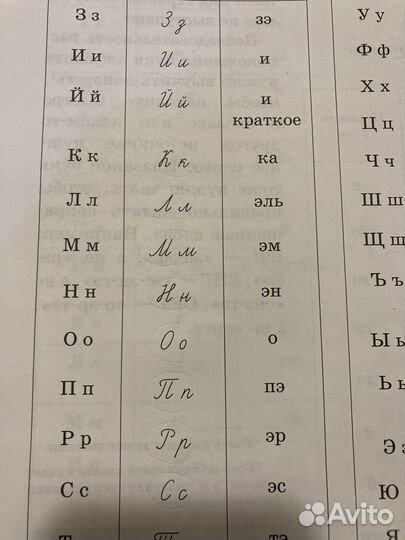 З з З з зэ
И и И и и
Й й Й й и
краткое
К к К к ка
Л л Л л эль
М м М м эм
Н н Н н эн
О о О о о
П п П п пэ
Р р Р р эр
С с С с эс
Т Т тэ
У у
Ф ф
Х х
Ц ц
Ч ч
Ш ш
Щ щ
Ъ ъ
Ы ы
Ь ь
Э
Ю
Я
Avito